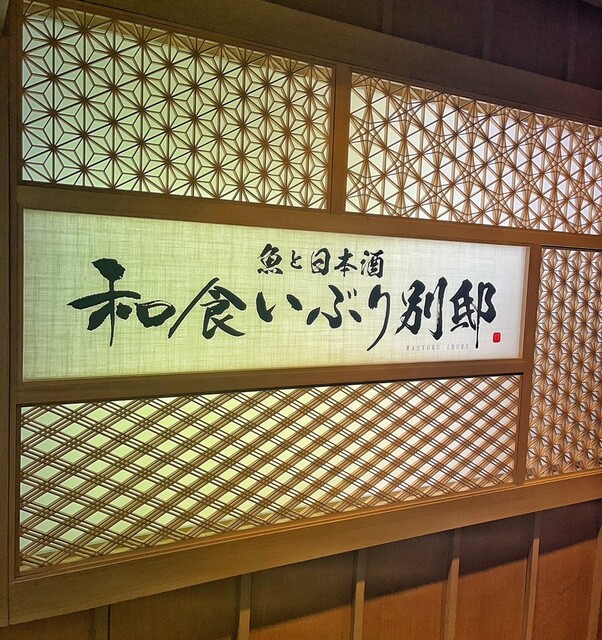 魚と日本酒
和食いぶり別邸
WASYOKU IBURI